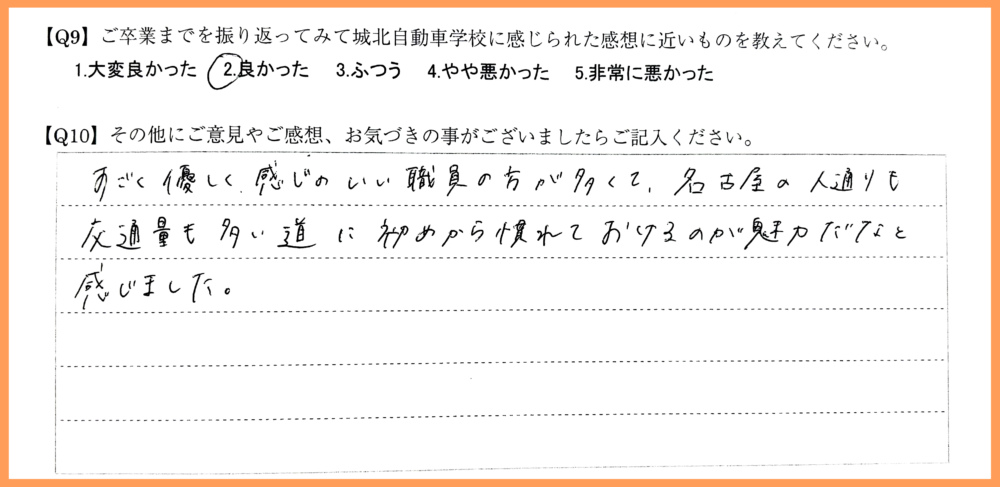 【Q9】ご卒業までを振り返ってみて城北自動車学校に感じられた感想に近いものを教えてください。
1.大変良かった 2.良かった 3.ふつう 4.やや悪かった 5.非常に悪かった
【Q10】その他にご意見やご感想、お気づきの事がございましたらご記入ください。
すごく優しく、感じのいい職員の方が多くて、名古屋の人通りも
交通量も多い道に初めから慣れておけるのが魅力だなと
感じました。